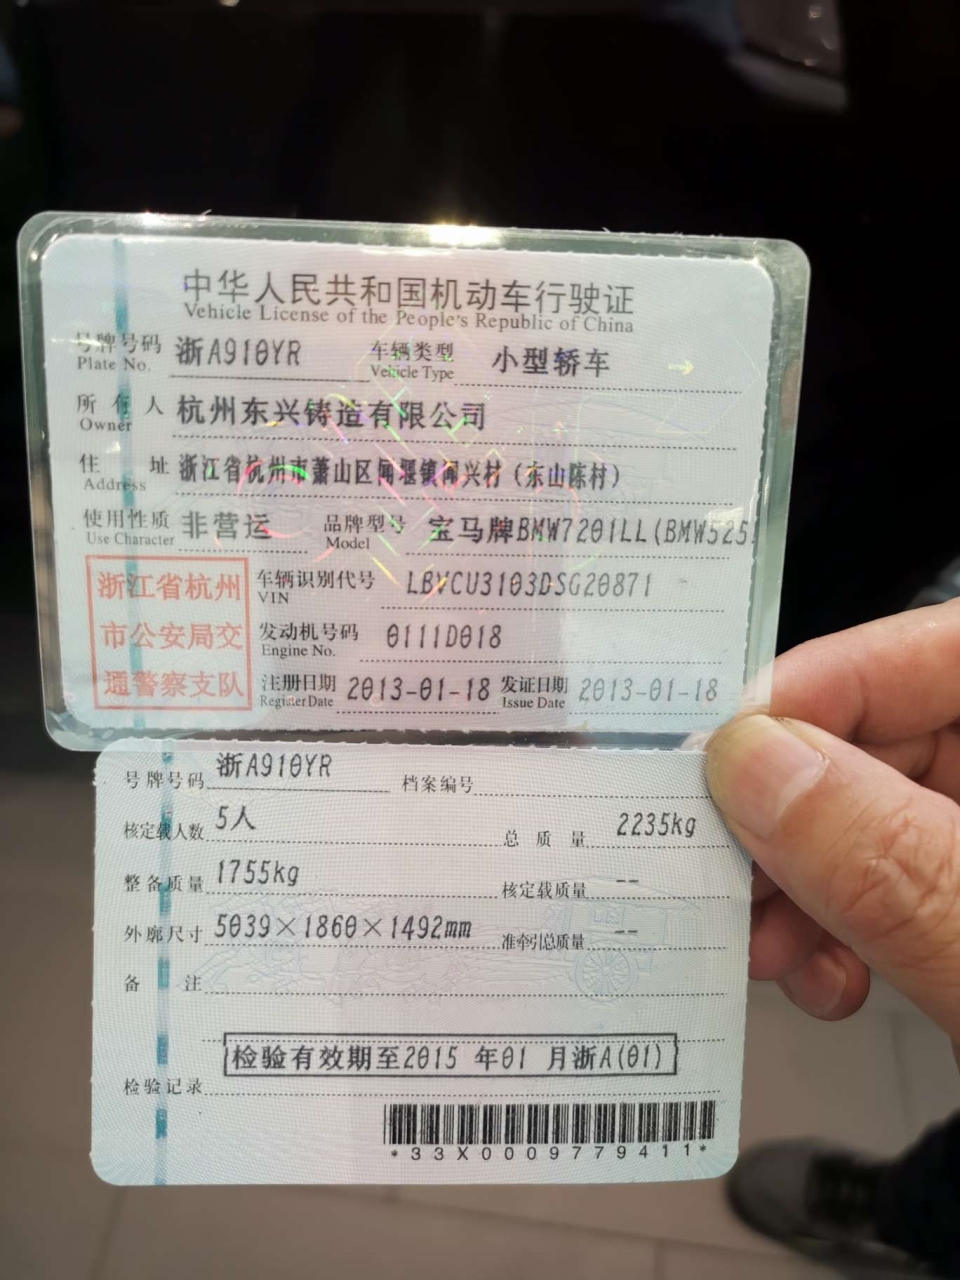 中华人民共和国机动车行驶证
Vehicle License of the People's Republic of China
号牌号码 浙A910YR 车辆类型 小型轿车
Plate No. Vehicle Type
所有人 杭州东兴铸造有限公司
Owner
住址 浙江省杭州市萧山区闻堰镇闻兴村（东山陈村）
Address
使用性质 非营运 品牌型号 宝马牌BMW7201LL(BMW525
Use Character Model
浙江省杭州
市公安局交
通警察支队
车辆识别代号 LBVCU3103DSG20871
VIN
发动机号码 0111D018
Engine No.
注册日期 2013-01-18 发证日期 2013-01-18
Register Date Issue Date
号牌号码 浙A910YR 档案编号
核定载人数 5人 总质量 2235kg
整备质量 1755kg 核定载质量 --
外廓尺寸 5039×1860×1492mm 准牵引总质量 --
备注
检验有效期至2015 年01 月浙A(01)
检验记录
*33X0009779411*